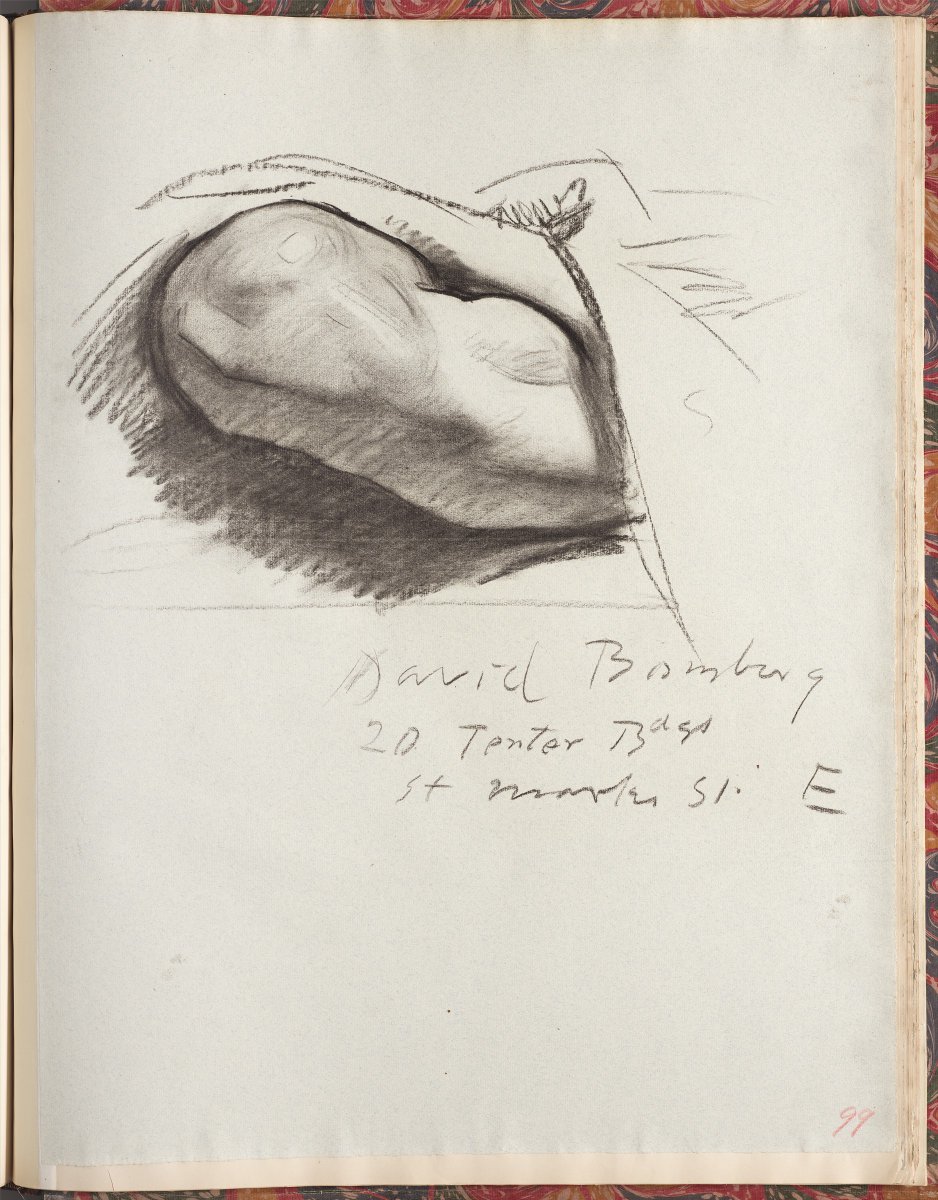 David Bomberg
20 Tenter Bdgs
St Marks St. E
99